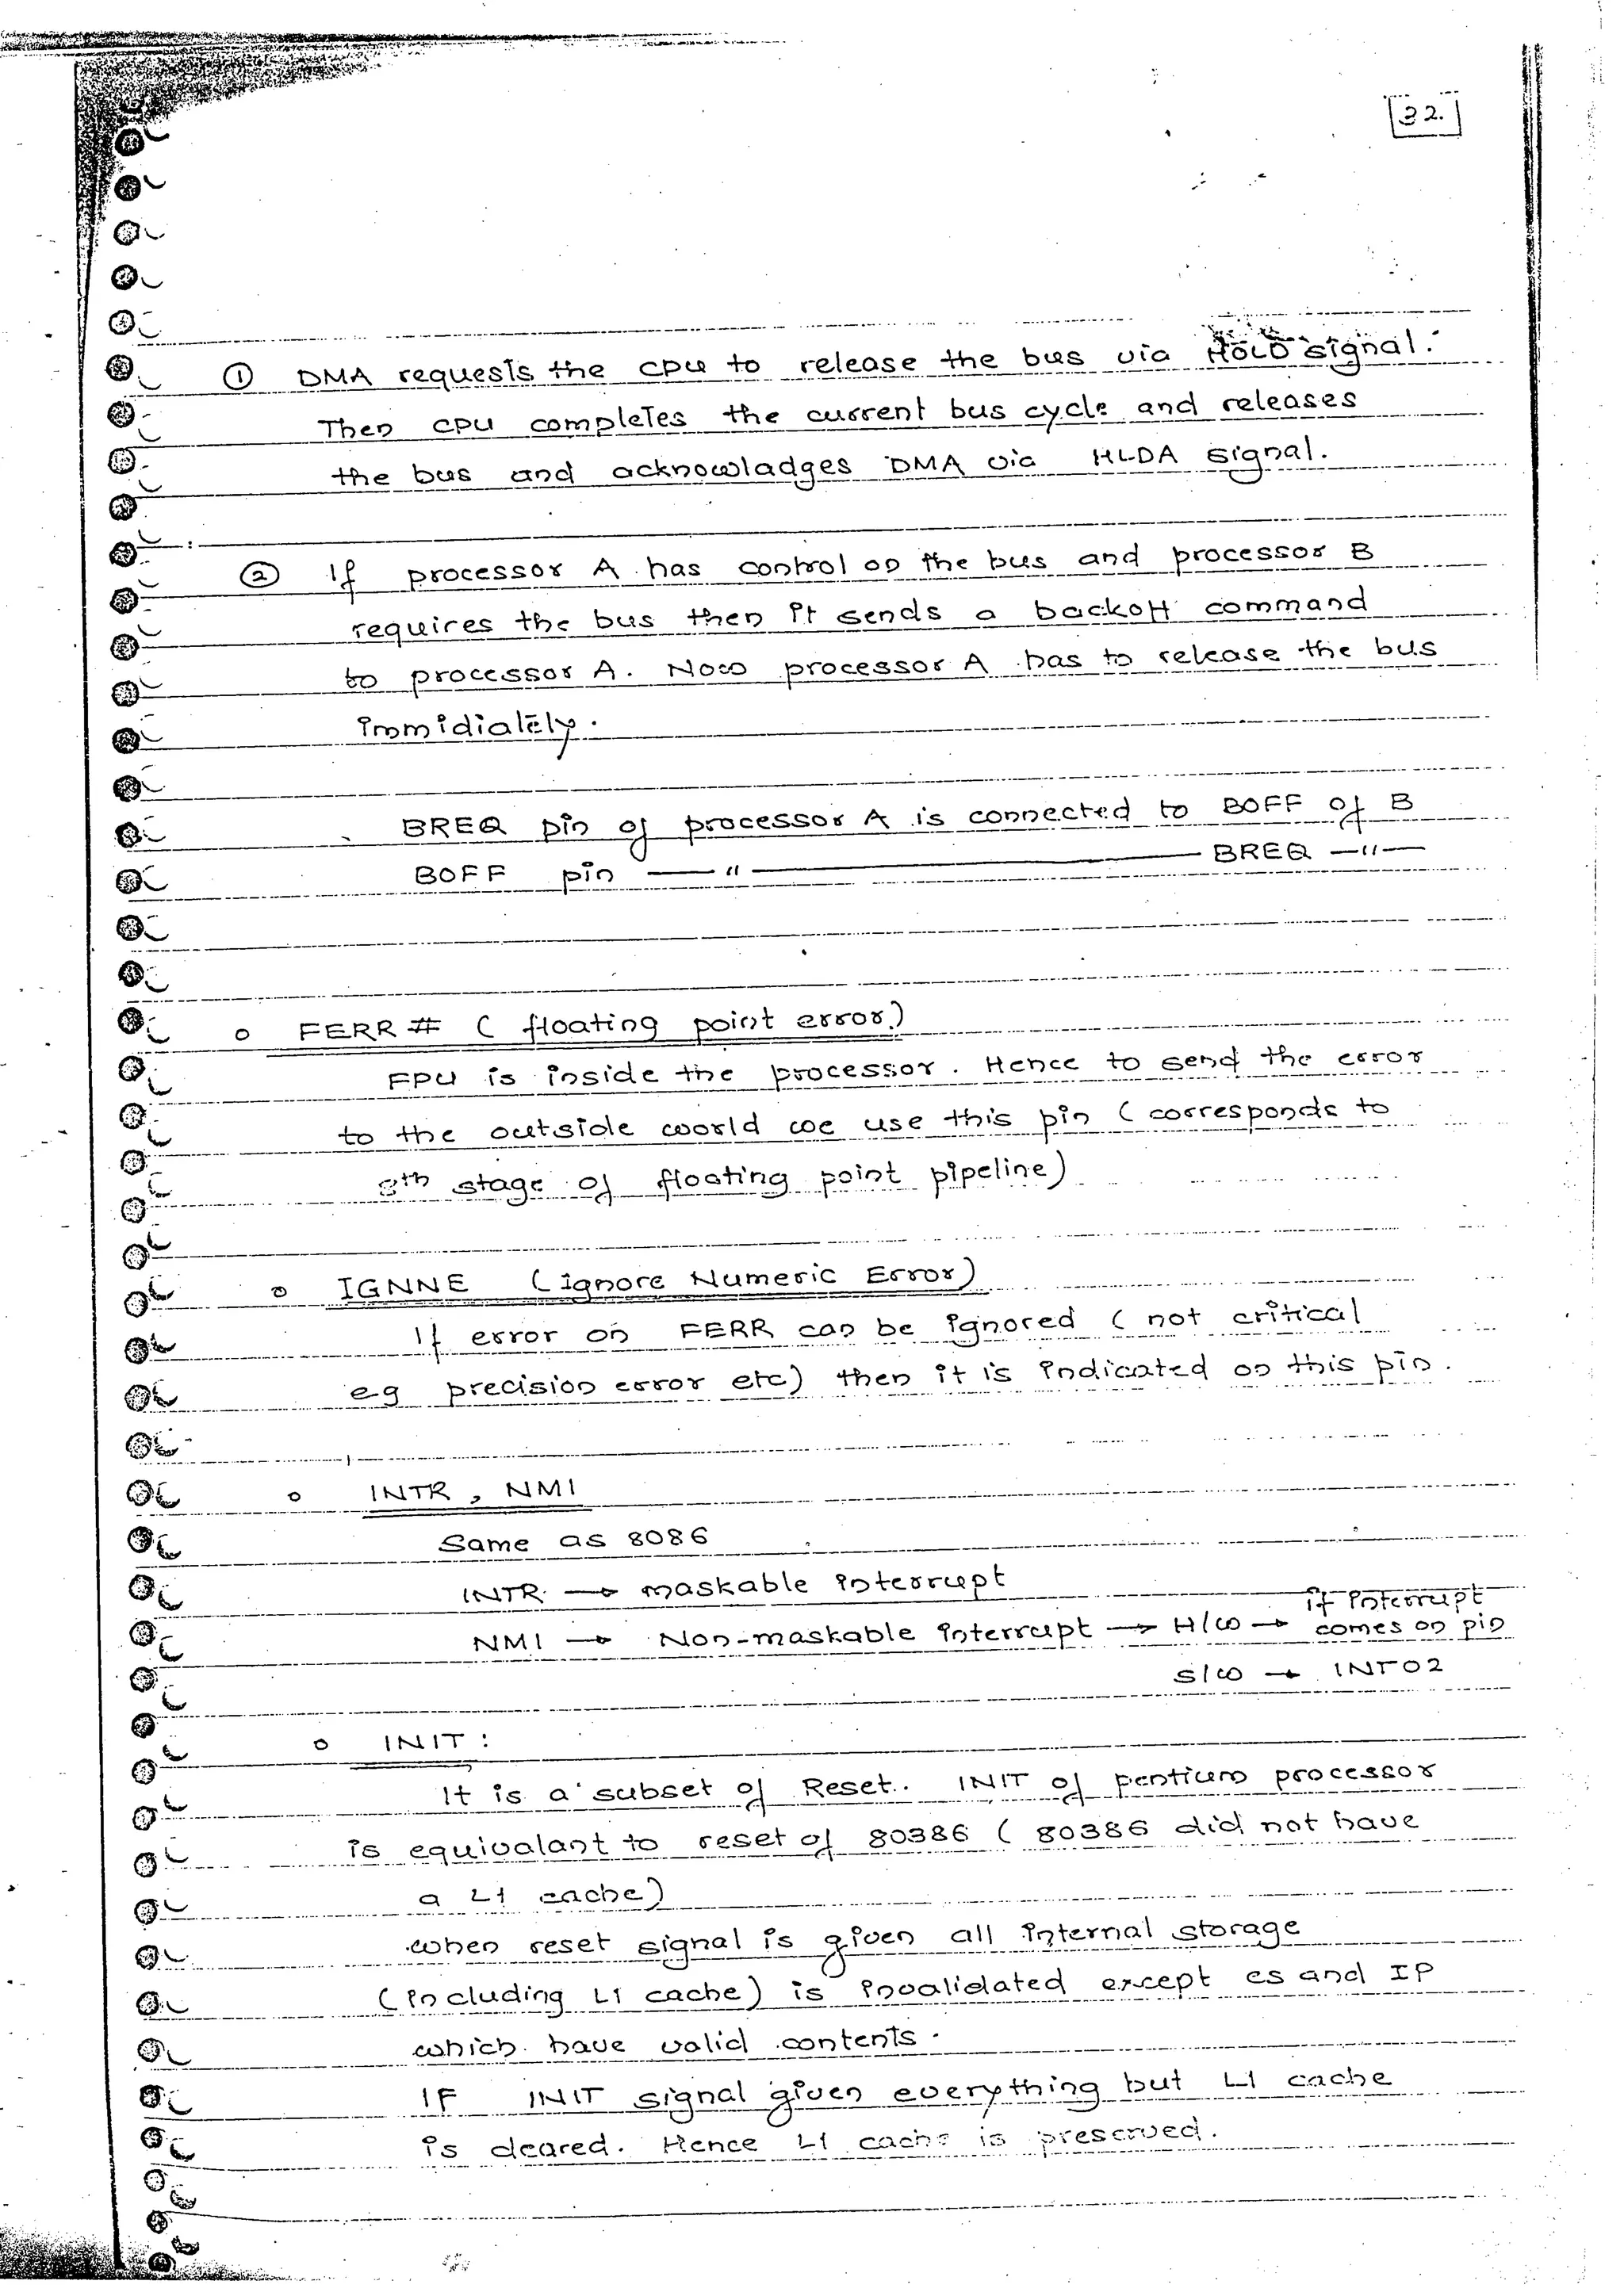 32.
① DMA requests the CPU to release the bus via HOLD signal.
Then CPU completes the current bus cycle and releases
the bus and acknowladges DMA via HLDA signal.
② If processor A has control on the bus and processor B
requires the bus then it sends a backoff command
to processor A. Now processor A has to release the bus
immidiately.
BREQ pin of processor A is connected to BOFF of B
BOFF pin —— " —— BREQ —"—
o FERR # ( floating point error.)
FPU is inside the processor. Hence to send the error
to the outside world we use this pin ( corresponds to
8th stage of floating point pipeline)
o IGNNE (Ignore Numeric Error)
If error on FERR can be ignored ( not critical
eg precision error etc) then it is indicated on this pin.
o INTR, NMI
Same as 8086
INTR → maskable interrupt
NMI → Non-maskable interrupt → H/W → if interrupt comes on pin
S/W → INT02
o INIT :
It is a subset of Reset. INIT of pentium processor
is equivalant to reset of 80386 ( 80386 did not have
a L1 cache)
when reset signal is given all internal storage
(including L1 cache) is invalidated except cs and IP
which have valid contents.
IF INIT signal given everything but L1 cache
is cleared. Hence L1 cache is preserved.